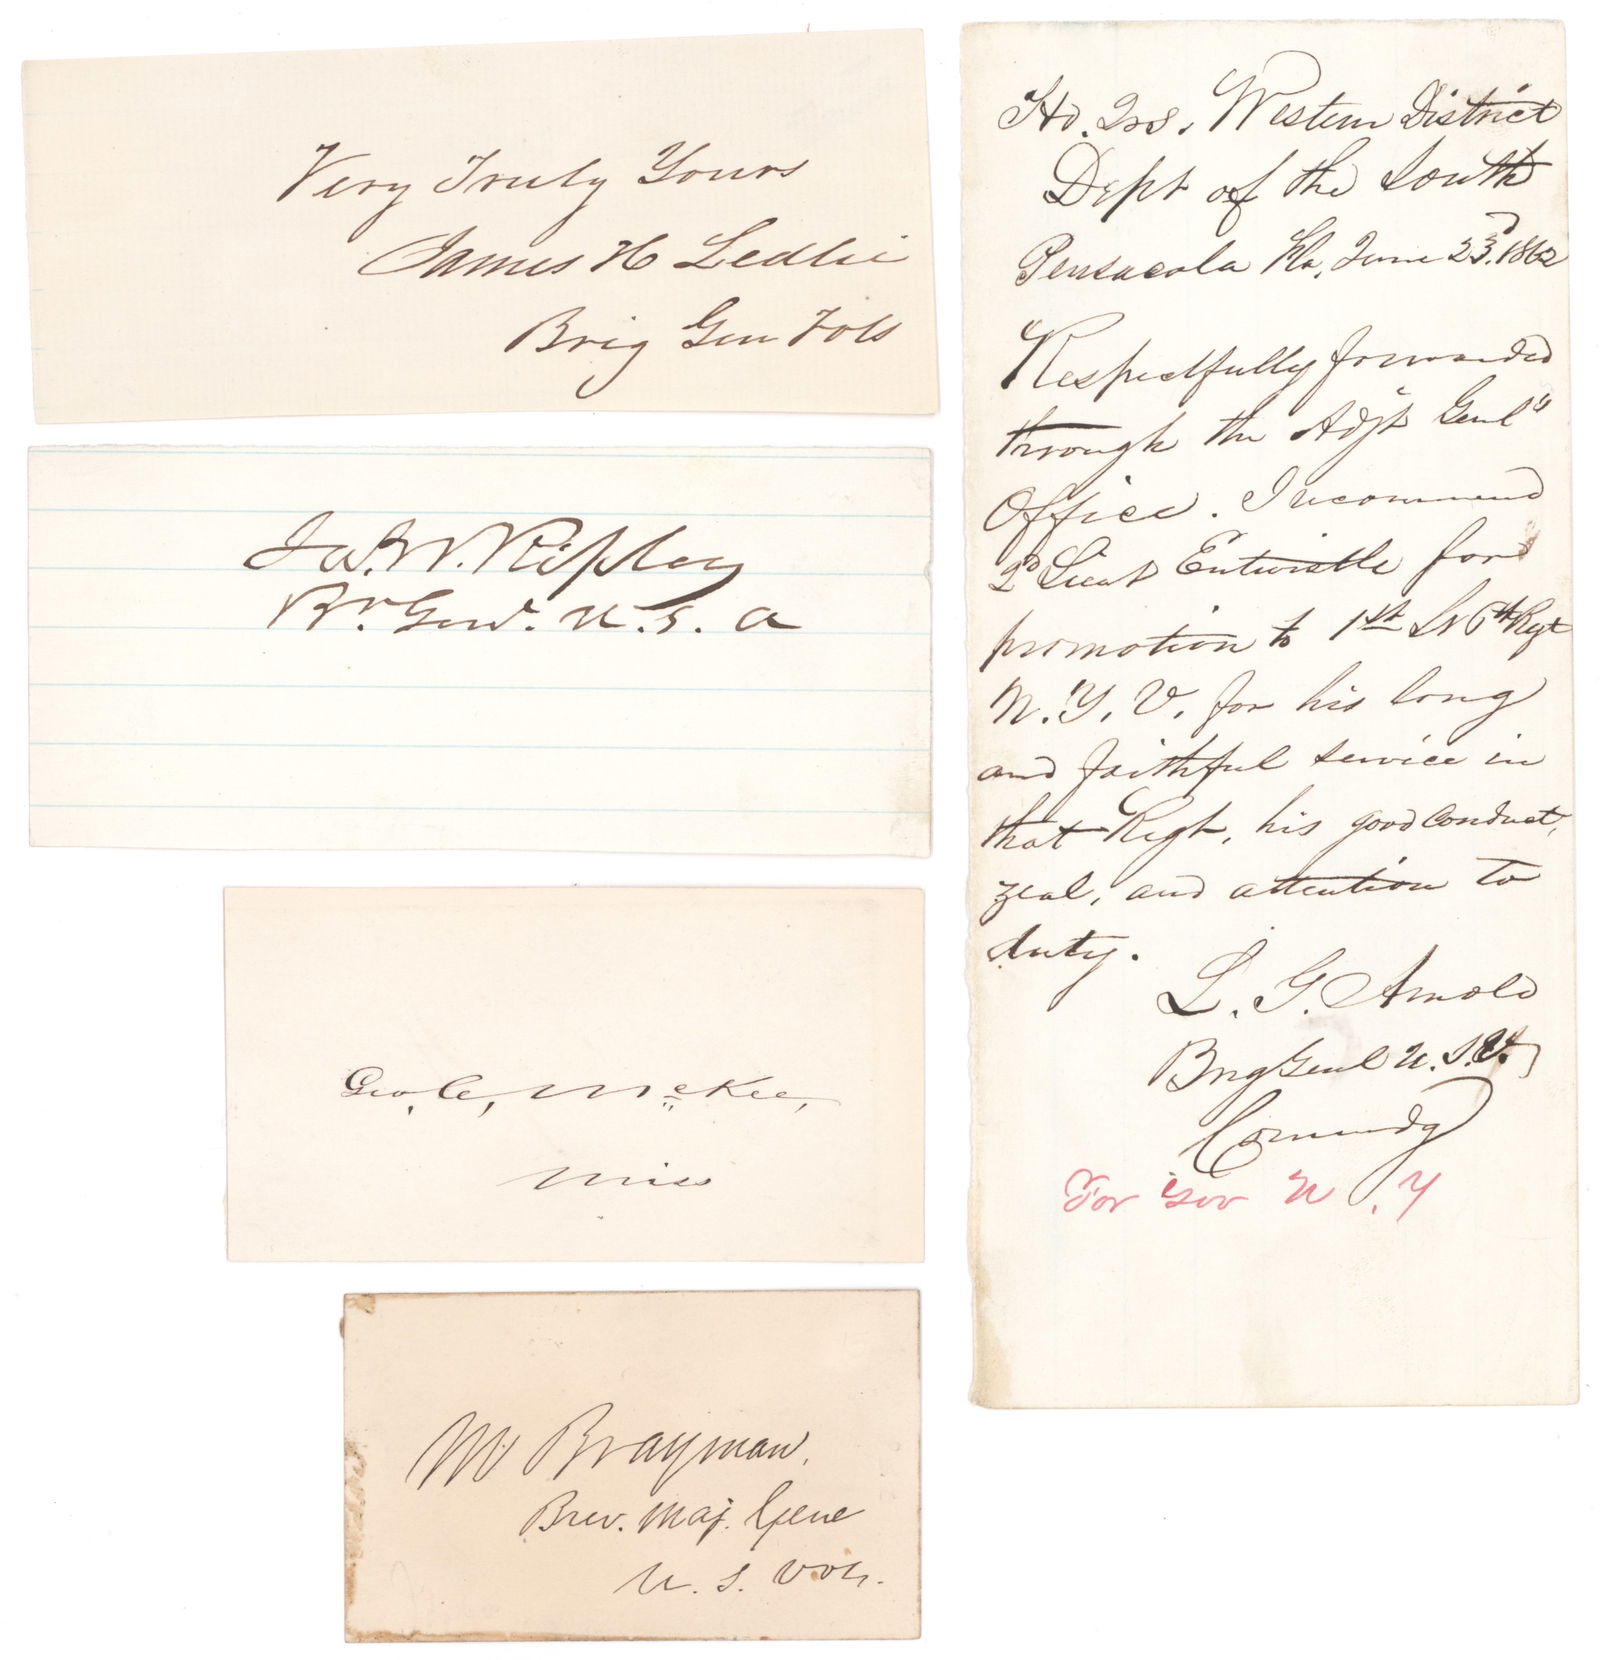 Very Truly Yours
James H Ledlie
Brig Gen Vols
Jas. W. Ripley
Br. Genl. U. S. A
Geo. C, McKee,
Miss
M Brayman,
Brev. Maj. Genl
U. S. Vols.
Hd. Qrs. Western District
Dept of the South
Pensacola Fla, June 23d. 1862
Respectfully forwarded
through the Adjt Genls"
Office. I recommend
2d Lieut Entwistle for
promotion to 1st Lt 6th Regt
N. Y. V. for his long
and faithful service in
that Regt, his good conduct,
zeal, and attention to
duty.
L. G. Arnold
Brig Genl U. S. V.
Comndg
For Gov N. Y